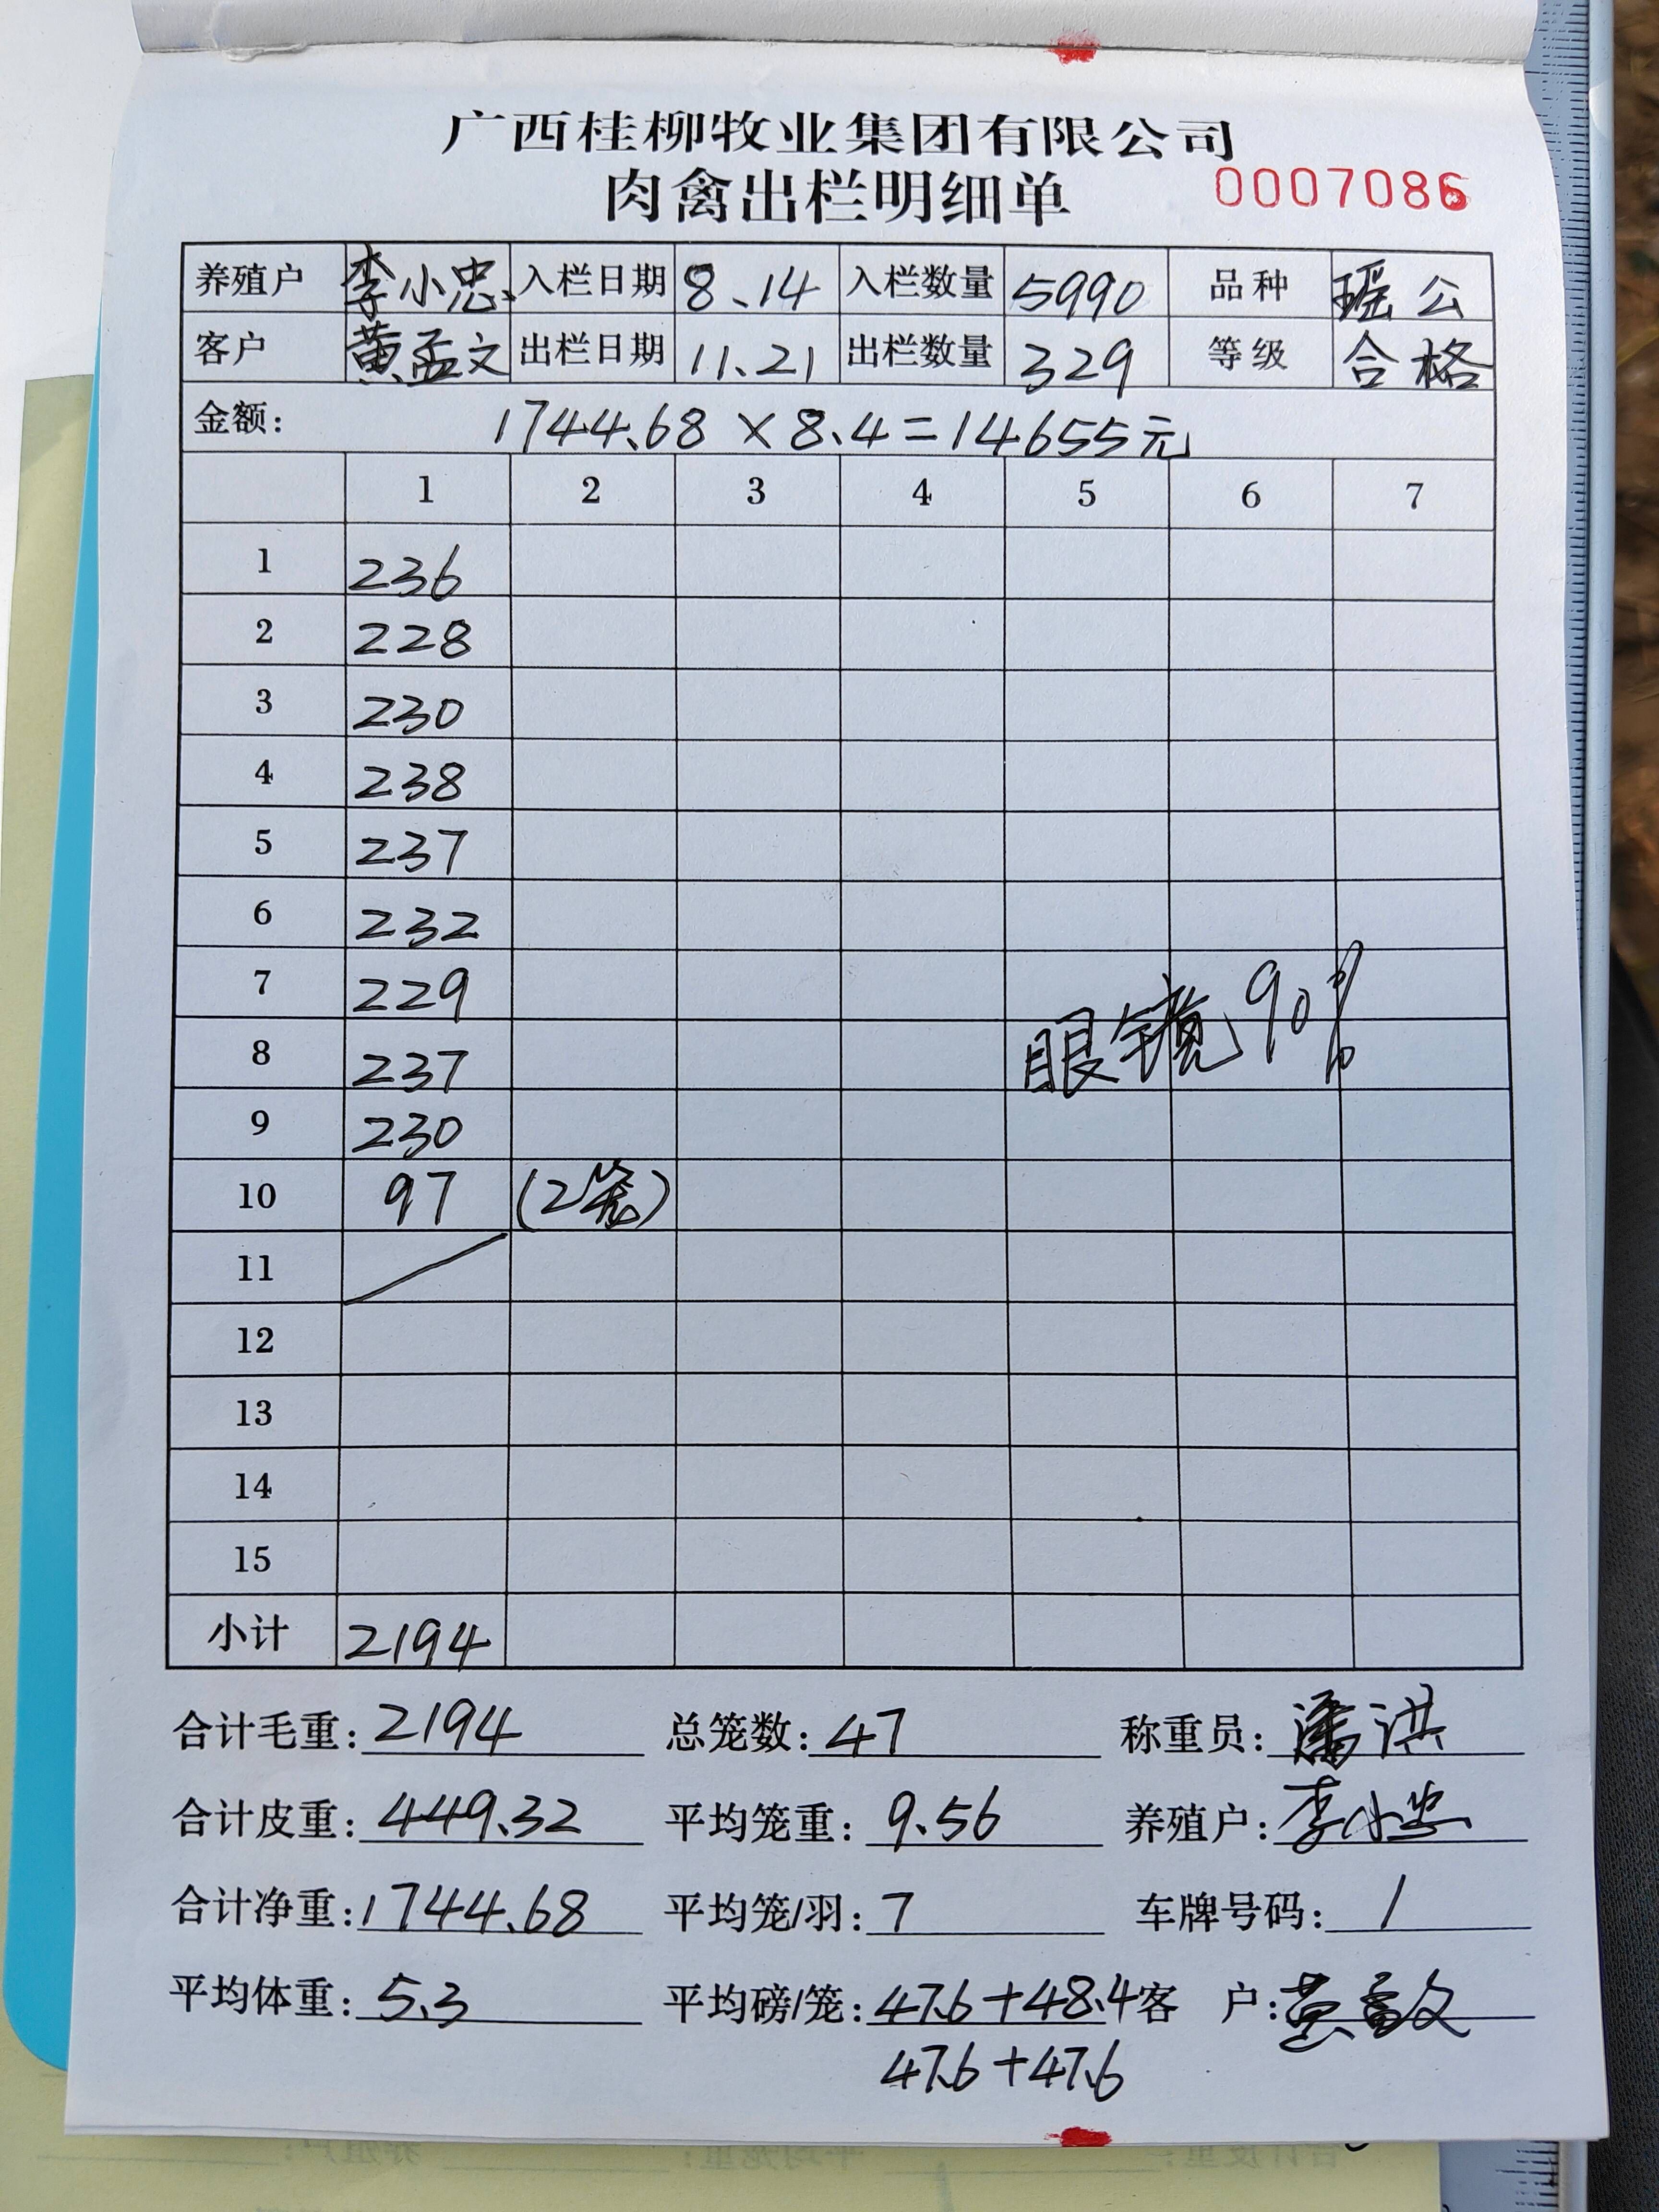 广西桂柳牧业集团有限公司
肉禽出栏明细单 0007086
养殖户 李小忠 入栏日期 8.14 入栏数量 5990 品种 瑶公
客户 黄孟文 出栏日期 11.21 出栏数量 329 等级 合格
金额: 1744.68×8.4=14655元
1 2 3 4 5 6 7
1 236
2 228
3 230
4 238
5 237
6 232
7 229
8 237 眼镜90%
9 230
10 97 (2笼)
11
12
13
14
15
小计 2194
合计毛重: 2194 总笼数: 47 称重员: 潘洪
合计皮重: 449.32 平均笼重: 9.56 养殖户: 李小忠
合计净重: 1744.68 平均笼/羽: 7 车牌号码: /
平均体重: 5.3 平均磅/笼: 47.6+48.4 客 户: 黄孟文
47.6+47.6